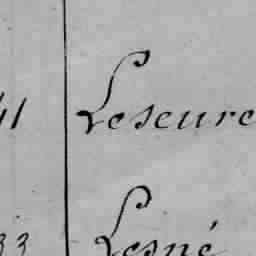 41 Leseure
33 Lesné